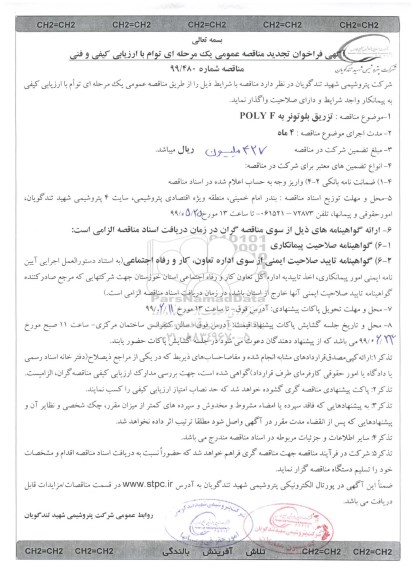 CH2=CH2 CH2=CH2 CH2=CH2 CH2=CH2 CH2=CH2
بسمه تعالی
آگهی فراخوان تجدید مناقصه عمومی یک مرحله ای توام با ارزیابی کیفی و فنی
مناقصه شماره ۹۹/۴۸۰
شرکت پتروشیمی شهید تندگویان در نظر دارد مناقصه با شرایط ذیل را از طریق مناقصه عمومی یک مرحله ای توأم با ارزیابی کیفی
به پیمانکار واجد شرایط و دارای صلاحیت واگذار نماید.
۱-موضوع مناقصه : تزریق بلوتونر به POLY F
۲- مدت اجرای موضوع مناقصه : ۴ ماه
۳- مبلغ تضمین شرکت در مناقصه ۴۲۷ میلیون ریال میباشد.
۴- انواع تضمین های معتبر برای شرکت در مناقصه:
۴-۱) ضمانت نامه بانکی ۴-۲) واریز وجه به حساب اعلام شده در اسناد مناقصه
۵-محل و مهلت توزیع اسناد مناقصه : بندر امام خمینی، منطقه ویژه اقتصادی پتروشیمی، سایت ۴ پتروشیمی شهید تندگویان،
امورحقوقی و پیمانها، تلفن ۷۲۸۷۳-۰۶۱۵۲۱- تا ساعت ۱۳ مورخ
۶- ارائه گواهینامه های ذیل از سوی مناقصه گران در زمان دریافت اسناد مناقصه الزامی است:
۶-۱) گواهینامه صلاحیت پیمانکاری
۶-۲) گواهینامه تایید صلاحیت ایمنی از سوی اداره تعاون، کار و رفاه اجتماعی(به استناد دستورالعمل اجرایی آیین
نامه ایمنی امور پیمانکاری، اخذ تاییدیه اداره کل تعاون کار و رفاه اجتماعی استان خوزستان جهت شرکتهایی که مرجع صادرکننده
گواهینامه تایید صلاحیت ایمنی آنها خارج از استان باشد، در زمان دریافت اسناد مناقصه الزامی است.)
۷- محل و مهلت تحویل پاکات پیشنهادی: آدرس فوق- تا ساعت ۱۳ مورخ
۸- محل و تاریخ جلسه گشایش پاکات پیشنهاد قیمت: آدرس فوق- سالن کنفرانس ساختمان مرکزی- ساعت ۱۱ صبح مورخ
می باشد که از پیشنهاد دهندگان دعوت می شود در جلسه گشایش پاکات حضور یابند.
تذکر۱:ارائه کپی مصدق قراردادهای مشابه انجام شده و مفاصاحساب‌های ذیربط که در یکی از مراجع ذیصلاح(دفتر خانه اسناد رسمی
یا دادگاه یا امور حقوقی کارفرمای طرف قرارداد)گواهی شده است، جهت بررسی مدارک ارزیابی کیفی مناقصه‌گران، الزامیست.
تذکر۲: پاکت پیشنهادی مناقصه گری گشوده خواهد شد که حد نصاب امتیاز ارزیابی کیفی را کسب نمایند.
تذکر۳: به پیشنهادهایی که فاقد سپرده یا امضاء مشروط و مخدوش و سپرده های کمتر از میزان مقرر، چک شخصی و نظایر آن و
پیشنهادهایی که پس از انقضاء مدت مقرر در آگهی واصل شود مطلقا ترتیب اثر داده نخواهد شد.
تذکر۴: سایر اطلاعات و جزئیات مربوطه در اسناد مناقصه مندرج می باشد.
تذکر۵: شرکت در فرآیند مناقصه جهت مناقصه گری فراهم خواهد شد که حضوراً نسبت به دریافت اسناد مناقصه اقدام و مشخصات
خود را تسلیم دستگاه مناقصه گزار نماید.
ضمناً این آگهی در پورتال الکترونیکی پتروشیمی شهید تندگویان به آدرس www.stpc.ir در قسمت مناقصات/مزایدات قابل
دریافت می باشد.
روابط عمومی شرکت پتروشیمی شهید تندگویان
CH2=CH2 CH2=CH2 تلاش آفرینش بالندگی CH2=CH2 CH2=CH2